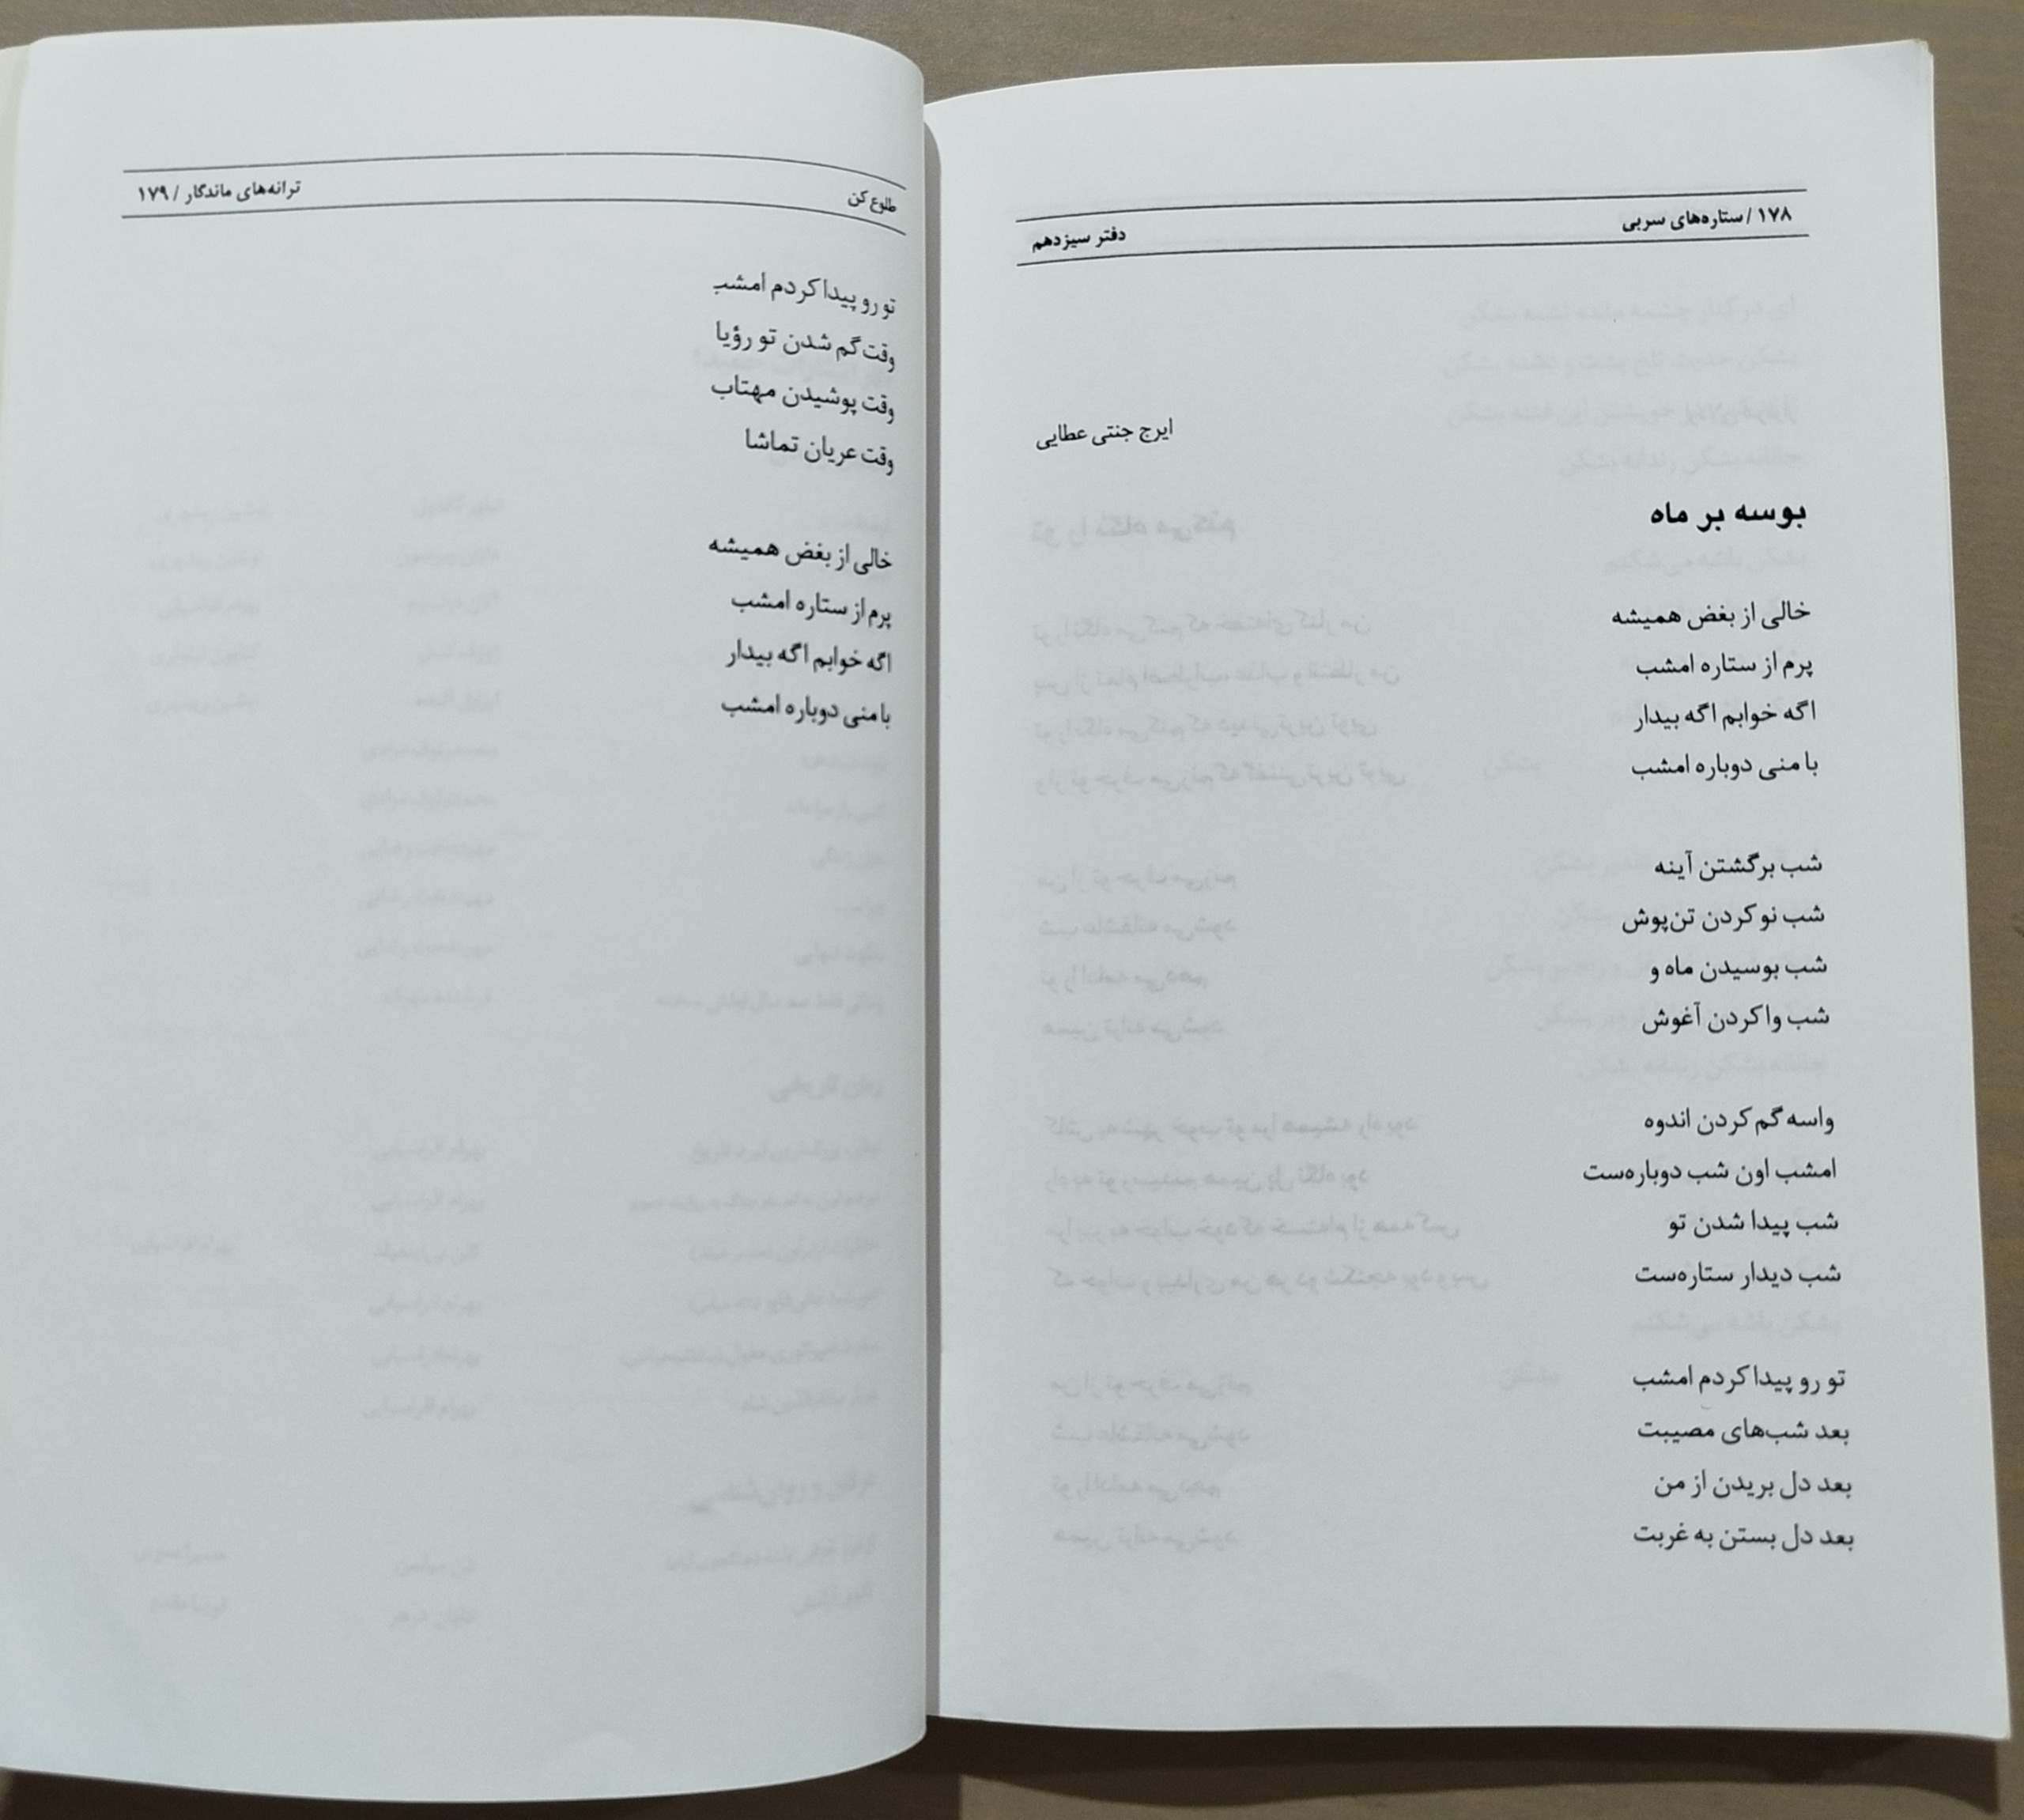 ۱۷۸ / ستاره‌های سربی
دفتر سیزدهم
ایرج جنتی عطایی
بوسه بر ماه
خالی از بغض همیشه
پرم از ستاره امشب
اگه خوابم اگه بیدار
با منی دوباره امشب
شب برگشتن آینه
شب نو کردن تن‌پوش
شب بوسیدن ماه و
شب وا کردن آغوش
واسه گم کردن اندوه
امشب اون شب دوباره‌ست
شب پیدا شدن تو
شب دیدار ستاره‌ست
تو رو پیدا کردم امشب
بعد شب‌های مصیبت
بعد دل بریدن از من
بعد دل بستن به غربت
طلوع کن
ترانه‌های ماندگار / ۱۷۹
تو رو پیدا کردم امشب
وقت گم شدن تو رؤیا
وقت پوشیدن مهتاب
وقت عریان تماشا
خالی از بغض همیشه
پرم از ستاره امشب
اگه خوابم اگه بیدار
با منی دوباره امشب